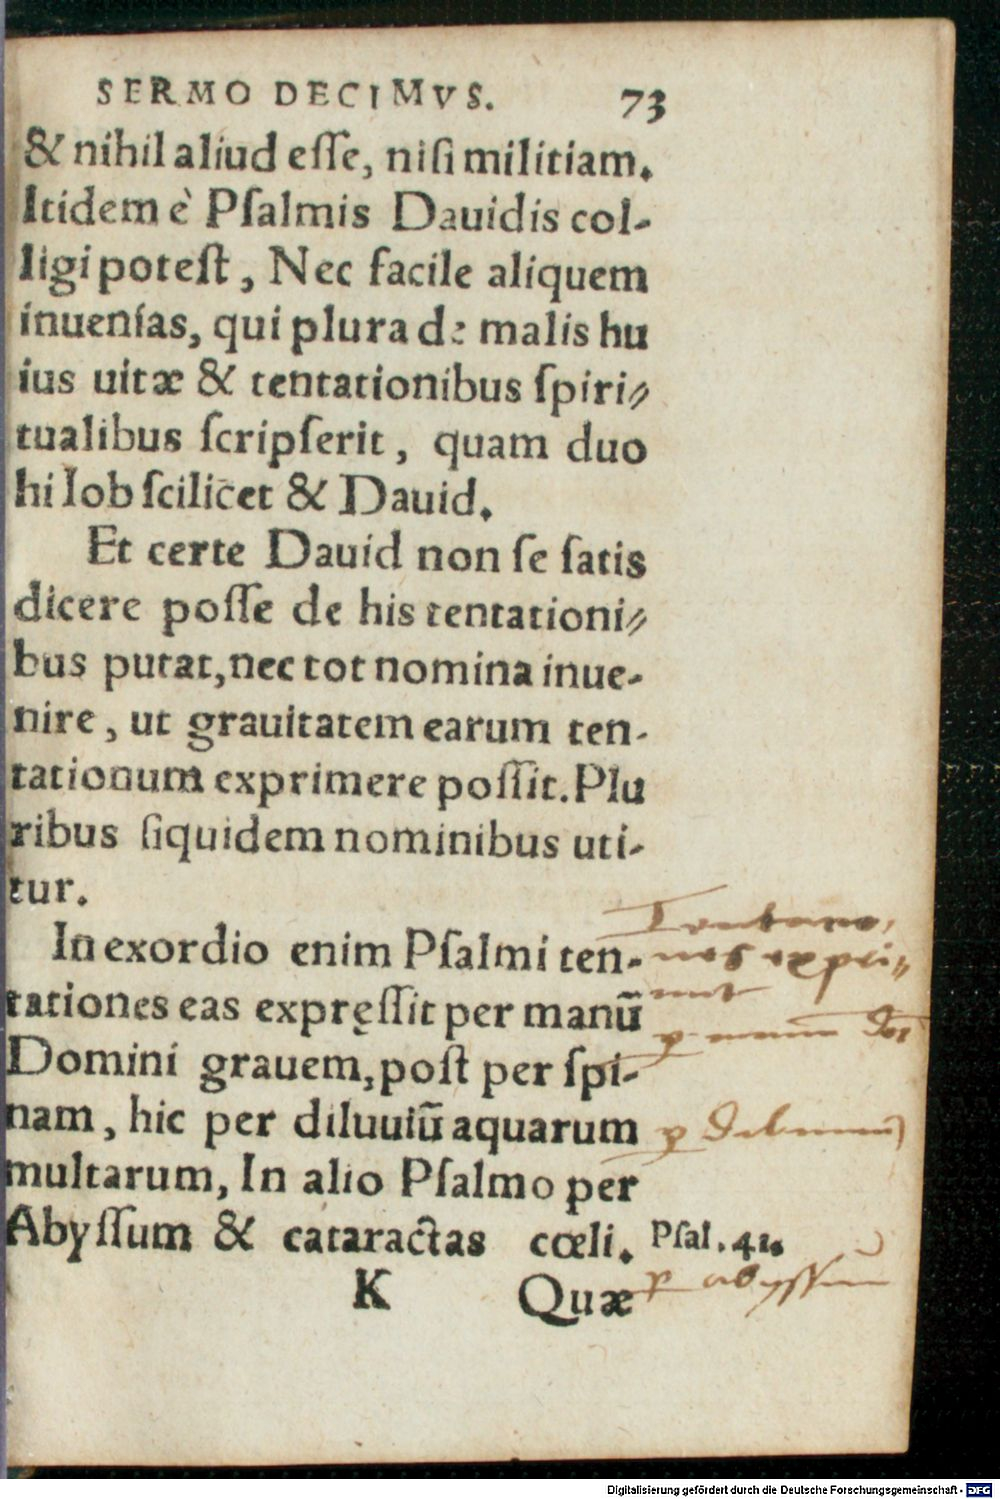 SERMO DECIMVS. 73
& nihil aliud eſſe, niſi militiam.
Itidem è Pſalmis Dauidis col-
ligi poteſt, Nec facile aliquem
inuenias, qui plura de malis hu
ius uitæ & tentationibus ſpiri⸗
tualibus ſcripſerit, quam duo
hi Iob ſcilicet & Dauid.
Et certe Dauid non ſe ſatis
dicere poſſe de his tentationi⸗
bus putat, nec tot nomina inue-
nire, ut grauitatem earum ten-
tationum exprimere poſſit. Plu
ribus ſiquidem nominibus uti-
tur.
In exordio enim Pſalmi ten-
tationes eas expręſſit per manū
Domini grauem, poſt per ſpi-
nam, hic per diluuiū aquarum
multarum, In alio Pſalmo per
Abyſſum & cataractas cœli.
Pſal. 41.
K Quæ
abyſſum
Digitalisierung gefördert durch die Deutsche Forschungsgemeinschaft - DFG